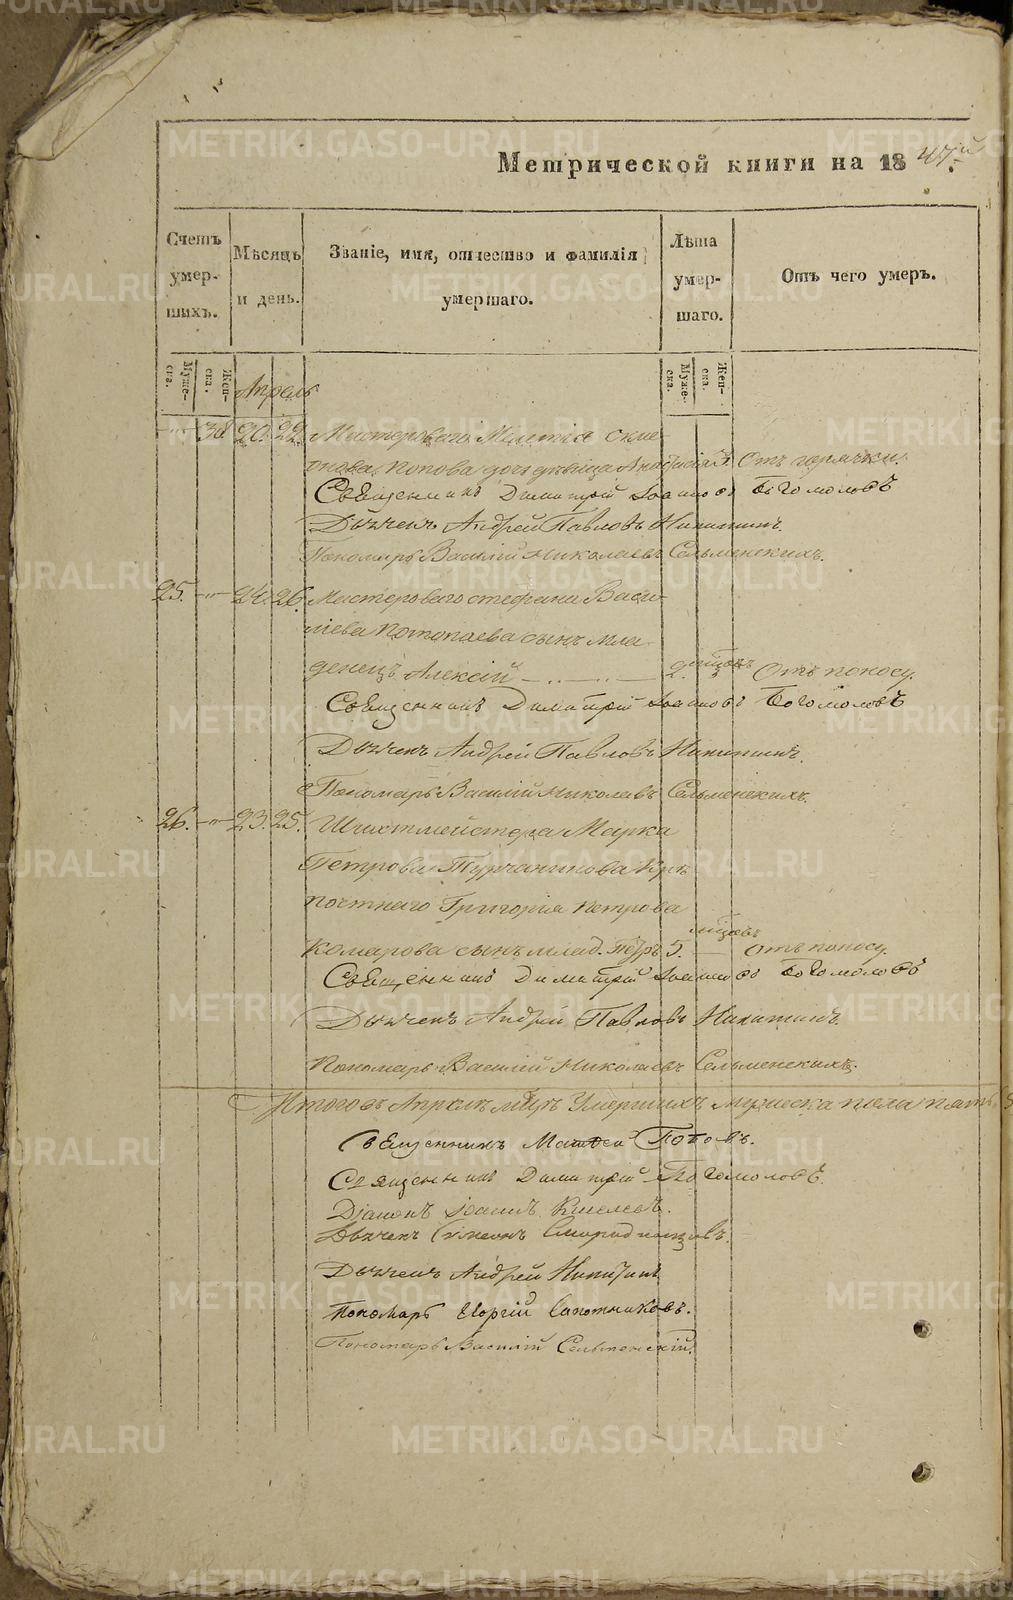 Метрической книги на 1847й.
Счетъ умер-шихъ.
Мѣсяцъ и день.
Званіе, имя, отчество и фамилія умершаго.
Лѣта умер-шаго.
Отъ чего умеръ.
Муже-ска.
Жен-ска.
Муже-ска.
Жен-ска.
Апрель
38 20. 22. Мастероваго Мелетія Симе-
онова Попова дочь дѣвица Отъ горячки.
Священникъ Димитрій Іоанновъ Богомоловъ
Дьячекъ Андрей Павловъ Никитинъ.
Пономарь Василій Николаевъ Сельменскихъ.
25. 24. 26. Мастероваго Стефана Васи-
ліева Потопаева сынъ мла-
денецъ Алексій 2. Отъ поносу.
Священникъ Димитрій Іоанновъ Богомоловъ
Дьячекъ Андрей Павловъ Никитинъ.
Пономарь Василій Николаевъ Сельменскихъ.
26. 23. 25. Шихтмейстера Марка
Петрова Турчанинова Крѣ
постнаго Григорія Петрова
Комарова сынъ млад. Петръ 5. Отъ поносу.
Священникъ Димитрій Іоанновъ Богомоловъ
Дьячекъ Андрей Павловъ Никитинъ.
Пономарь Василій Николаевъ Сельменскихъ.
Итого въ Апрелѣ мцѣ Умершихъ мужеска пола пять
Священникъ Матѳей Поповъ.
Священникъ Димитрій Богомоловъ.
Діаконъ Іоаннъ Киселевъ.
Дьячекъ Сѵмеонъ
Дьячекъ Андрей Никитинъ
Пономарь Георгій Сапожниковъ.
Пономарь Василій Сельменскій.
METRIKI.GASO-URAL.RU